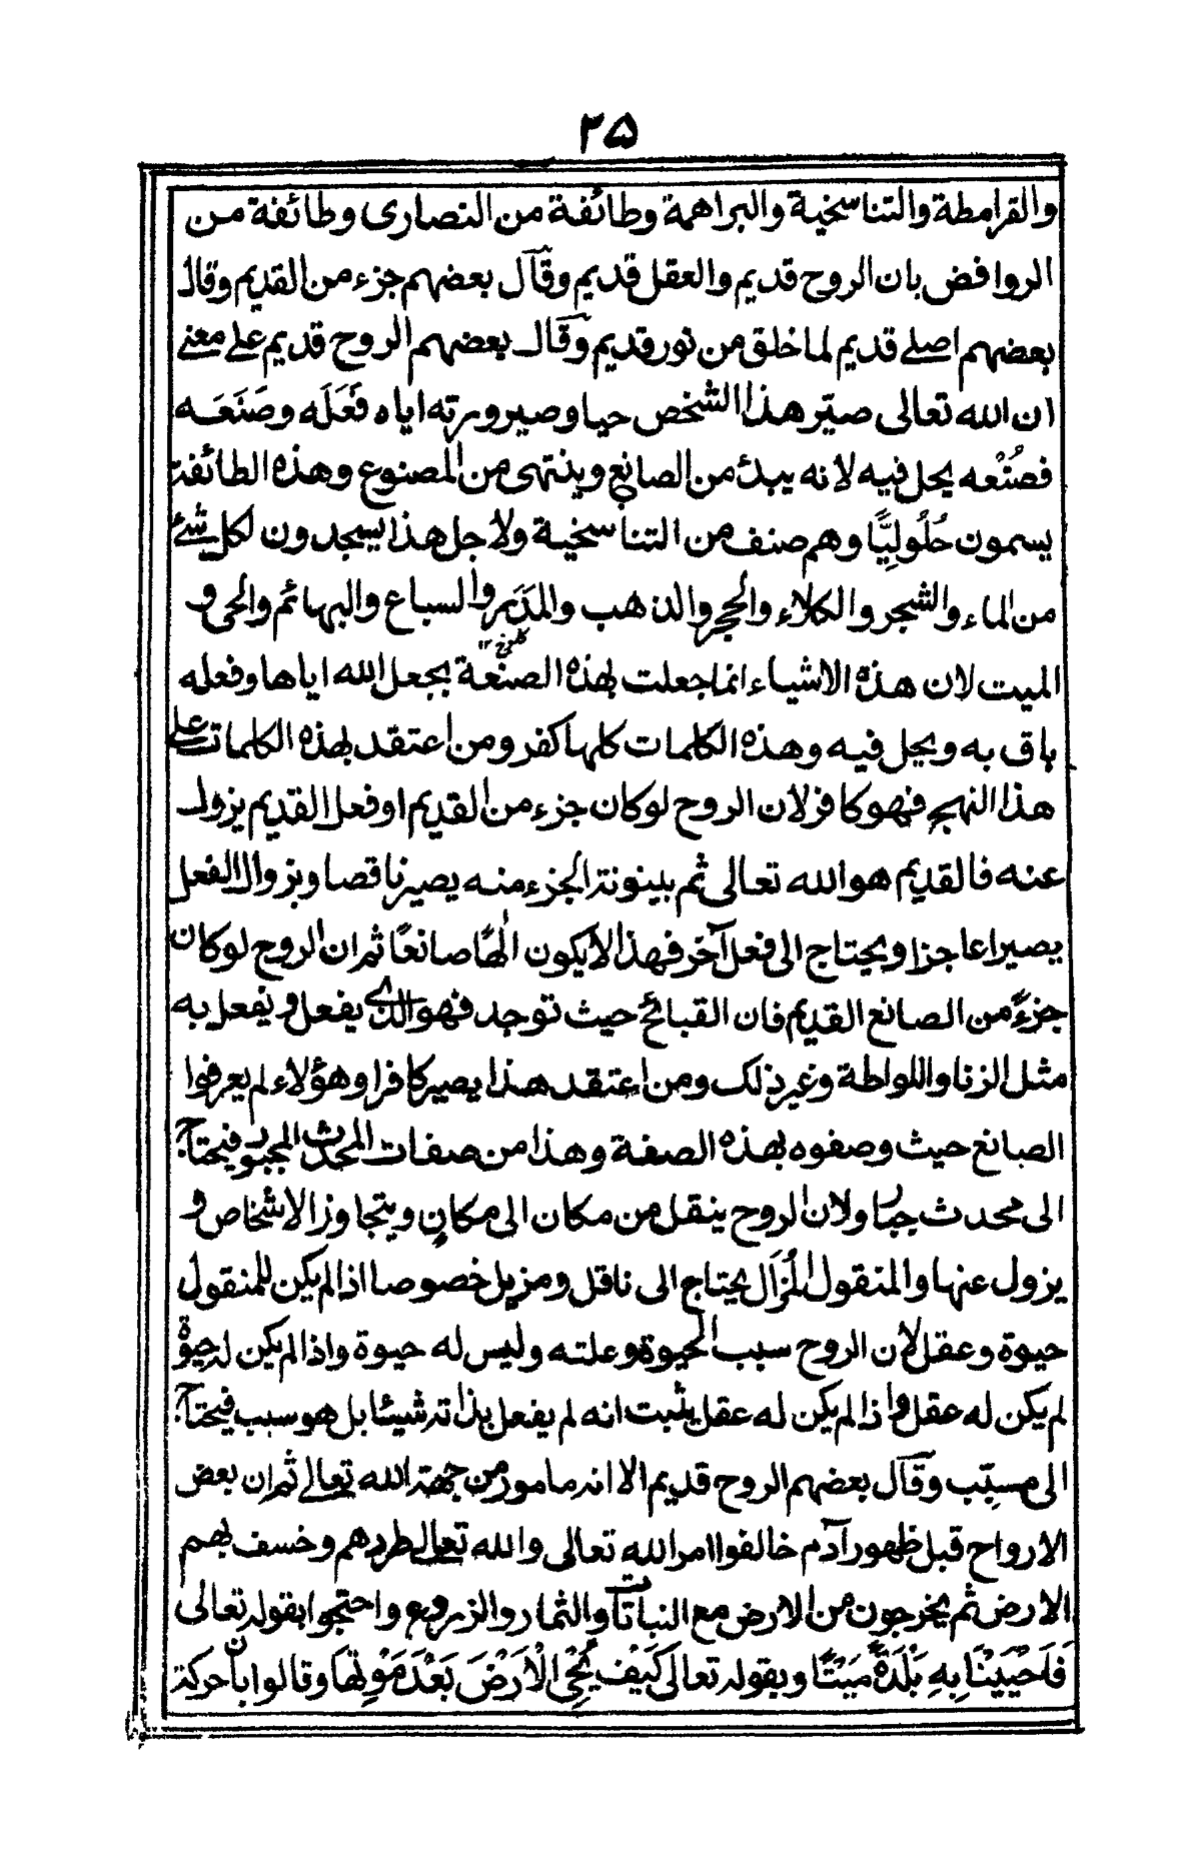 ۲۵
والقرامطة والتناسخية والبراهمة وطائفة من النصارى وطائفة من
الروافض بان الروح قديم والعقل قديم وقال بعضهم جزء من القديم وقال
بعضهم اصلے قديم لما خلق من نور قديم وقال بعضهم الروح قديم علے معنے
ان الله تعالى صيّر هذا الشخص حيا وصيرورته اياه فَعَلَه وصَنَعَه
فصُنْعه يحل فيه لانه يبدئ من الصانع وينتهى من المصنوع وهذه الطائفة
يسمون حُلُولِيًّا وهم صنف من التناسخية ولاجل هذا يسجدون لكل شئے
من الماء والشجر والكلاء والحجر والذهب والمَدَر والسباع والبهائم والحى و
كلوخ ۱۲
الميت لان هذه الاشياء انما جعلت بهذه الصنعة بجعل الله اياها وفعله
باق به ويحل فيه وهذه الكلمات كلها كفر ومن اعتقد بهذه الكلمات علے
هذا النهج فهو كافر لان الروح لوكان جزء من القديم او فعل القديم يزول
عنه فالقديم هو الله تعالى ثم بينونة الجزء منه يصير ناقصا وبزوال الفعل
يصير اعاجزا ويحتاج الى فعل آخر فهذا لايكون الٰهًا صانعًا ثم ان الروح لوكان
جزءً من الصانع القديم فان القبائح حيث توجد فهو الذے يفعل ويفعل به
مثل الزنا واللواطة وغير ذلك ومن اعتقد هذا يصير كافرا وهؤلاء لم يعرفوا
الصانع حيث وصفوه بهذه الصفة وهذا من صفات المحدث المجبور فيحتاج
الى محدث جبار ولان الروح ينقل من مكان الى مكانٍ ويتجاوز الاشخاص و
يزول عنها والمنقول المُزَال يحتاج الى ناقل ومزيل خصوصا اذا لم يكن للمنقول
حيوة وعقل لان الروح سبب الحيوة وعلته وليس له حيوة واذا لم يكن له حيوة
لم يكن له عقل واذا لم يكن له عقل يثبت انه لم يفعل بذاته شيئا بل هو سبب فيحتاج
الى مسبّب وقال بعضهم الروح قديم الا انه مامور من جهة الله تعالے ثم ان بعض
الارواح قبل ظهور آدم خالفوا امر الله تعالى والله تعالى طردهم وخسف بهم
الارض ثم يخرجون من الارض مع النباتات والثمار والزروع واحتجوا بقوله تعالى
فَاَحْيَيْنَا بِهِ بَلْدَةً مَيْتًا وبقوله تعالى كَيْفَ يُحْيِ الْاَرْضَ بَعْدَ مَوْتِهَا وقالوا بان حركة